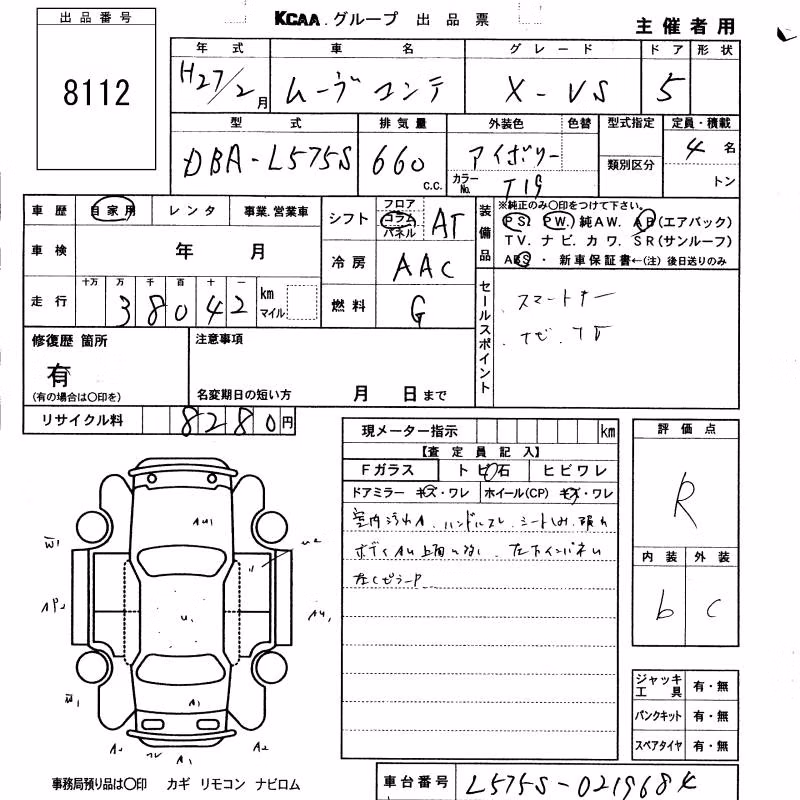 KCAA グループ 出品票
主催者用
出品番号
8112
年式 車名 グレード ドア 形状
H27/2月 ムーヴコンテ X-VS 5
型式 排気量 外装色 色替 型式指定 定員・積載
DBA-L575S 660 c.c. アイボリー 類別区分 4名
カラーNo. T19 トン
車歴 自家用 レンタ 事業.営業車
シフト フロア コラム パネル AT
装備品 ※純正のみ〇印をつけて下さい。
PS. PW. 純AW. AB(エアバック)
TV. ナビ. カワ. SR(サンルーフ)
ABS ・ 新車保証書←(注) 後日送りのみ
車検 年 月
冷房 AAC
走行 十万 万 千 百 十 一
38042 km マイル
燃料 G
セールスポイント
スマートキー
ナビ.TV
修復歴 箇所
有
(有の場合は〇印を)
注意事項
名変期日の短い方 月 日まで
リサイクル料 8280円
現メーター指示 km
【査定員記入】
Fガラス トビ石 ヒビワレ
ドアミラー キズ・ワレ ホイール(CP) キズ・ワレ
室内汚れA. ハンドルスレ. シートしみ.
評価点
R
内装 外装
b C
AU1
U2
W1
AP2
U1
AU1
W1
A1
A2
A1
A2
ジャッキ工具 有・無
パンクキット 有・無
スペアタイヤ 有・無
事務局預り品は〇印 カギ リモコン ナビロム
車台番号 L575S-0219684